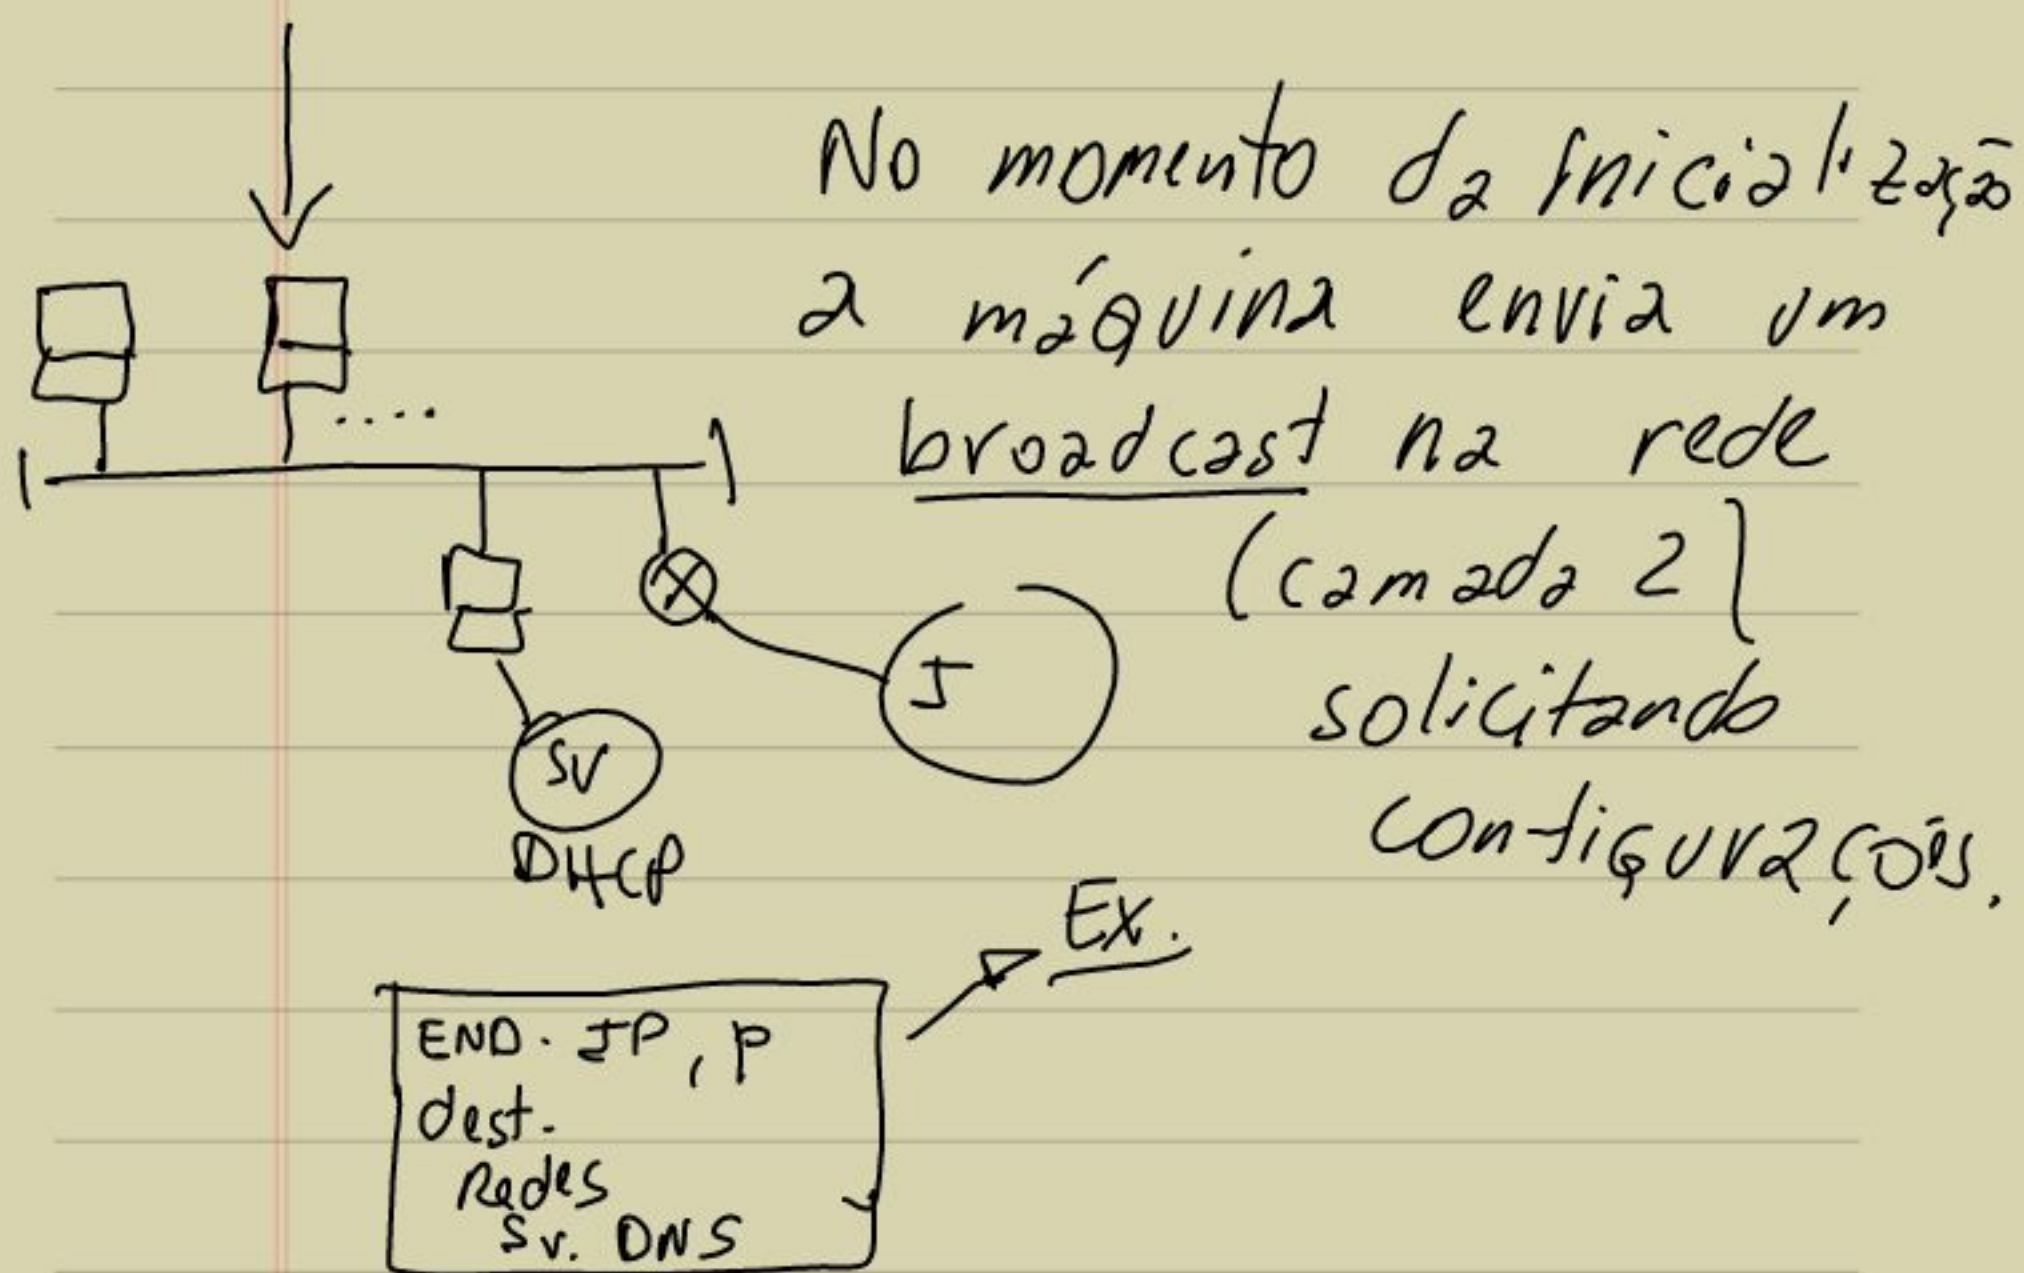 No momento da inicialização
a máquina envia um
broadcast na rede
(camada 2)
solicitando
configurações.
I
SV
DHCP
Ex.
END. IP, P
dest.
Redes
Sv. DNS